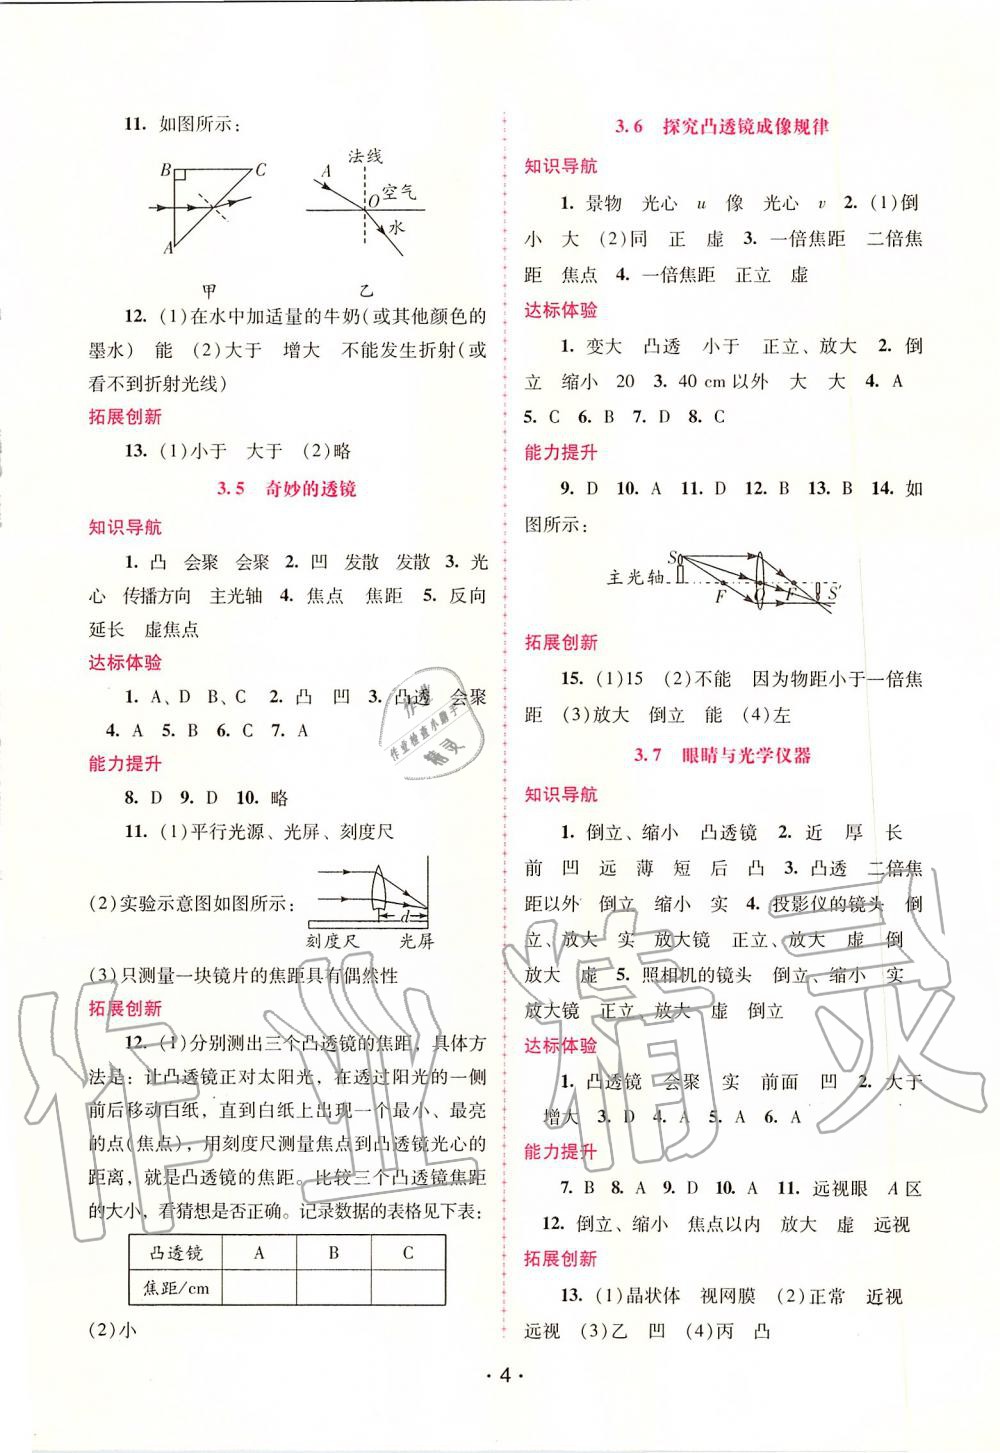 11. 如图所示:
B
C
A
甲
法线
A
空气
O
水
乙
12. (1)在水中加适量的牛奶(或其他颜色的
墨水) 能 (2)大于 增大 不能发生折射(或
看不到折射光线)
拓展创新
13. (1)小于 大于 (2)略
3.5 奇妙的透镜
知识导航
1. 凸 会聚 会聚 2. 凹 发散 发散 3. 光
心 传播方向 主光轴 4. 焦点 焦距 5. 反向
延长 虚焦点
达标体验
1. A、D B、C 2. 凸 凹 3. 凸透 会聚
4. A 5. B 6. C 7. A
能力提升
8. D 9. D 10. 略
11. (1)平行光源、光屏、刻度尺
(2)实验示意图如图所示:
d
刻度尺 光屏
(3)只测量一块镜片的焦距具有偶然性
拓展创新
12. (1)分别测出三个凸透镜的焦距，具体方
法是：让凸透镜正对太阳光，在透过阳光的一侧
前后移动白纸，直到白纸上出现一个最小、最亮
的点(焦点)，用刻度尺测量焦点到凸透镜光心的
距离，就是凸透镜的焦距。比较三个凸透镜焦距
的大小，看猜想是否正确。记录数据的表格见下表：
凸透镜 A B C
焦距/cm
(2)小
3.6 探究凸透镜成像规律
知识导航
1. 景物 光心 u 像 光心 v 2. (1)倒
小 大 (2)同 正 虚 3. 一倍焦距 二倍焦
距 焦点 4. 一倍焦距 正立 虚
达标体验
1. 变大 凸透 小于 正立、放大 2. 倒
立 缩小 20 3. 40 cm以外 大 大 4. A
5. C 6. B 7. D 8. C
能力提升
9. D 10. A 11. D 12. B 13. B 14. 如
图所示:
S
主光轴
F
O
F
S'
拓展创新
15. (1)15 (2)不能 因为物距小于一倍焦
距 (3)放大 倒立 能 (4)左
3.7 眼睛与光学仪器
知识导航
1. 倒立、缩小 凸透镜 2. 近 厚 长
前 凹 远 薄 短 后 凸 3. 凸透 二倍焦
距以外 倒立 缩小 实 4. 投影仪的镜头 倒
立、放大 实 放大镜 正立、放大 虚 倒
放大 虚 5. 照相机的镜头 倒立、缩小 实
放大镜 正立 放大 虚 倒立
达标体验
1. 凸透镜 会聚 实 前面 凹 2. 大于
增大 3. D 4. A 5. A 6. A
能力提升
7. B 8. A 9. D 10. A 11. 远视眼 A区
12. 倒立、缩小 焦点以内 放大 虚 远视
拓展创新
13. (1)晶状体 视网膜 (2)正常 近视
远视 (3)乙 凹 (4)丙 凸
· 4 ·
作业精灵
作业
作业检查小助手
精灵